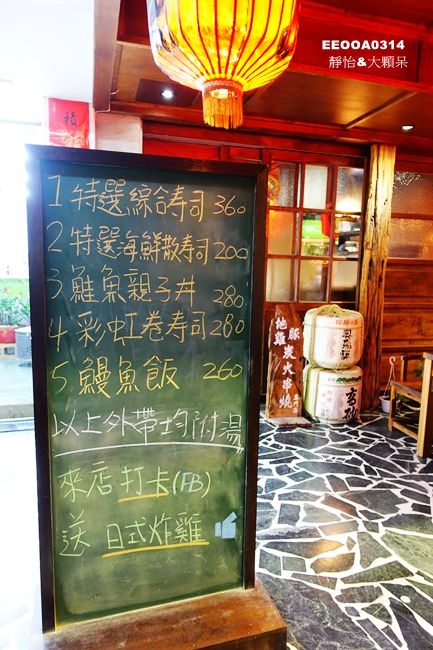 EEOOA0314
靜怡&大顆呆
1 特選綜合壽司 360
2 特選海鮮散壽司 200
3 鮭魚親子丼 280
4 彩虹卷壽司 280
5 鰻魚飯 260
以上外帶均附湯
來店打卡(FB)
送 日式炸雞
地雞
豚
炭火串燒